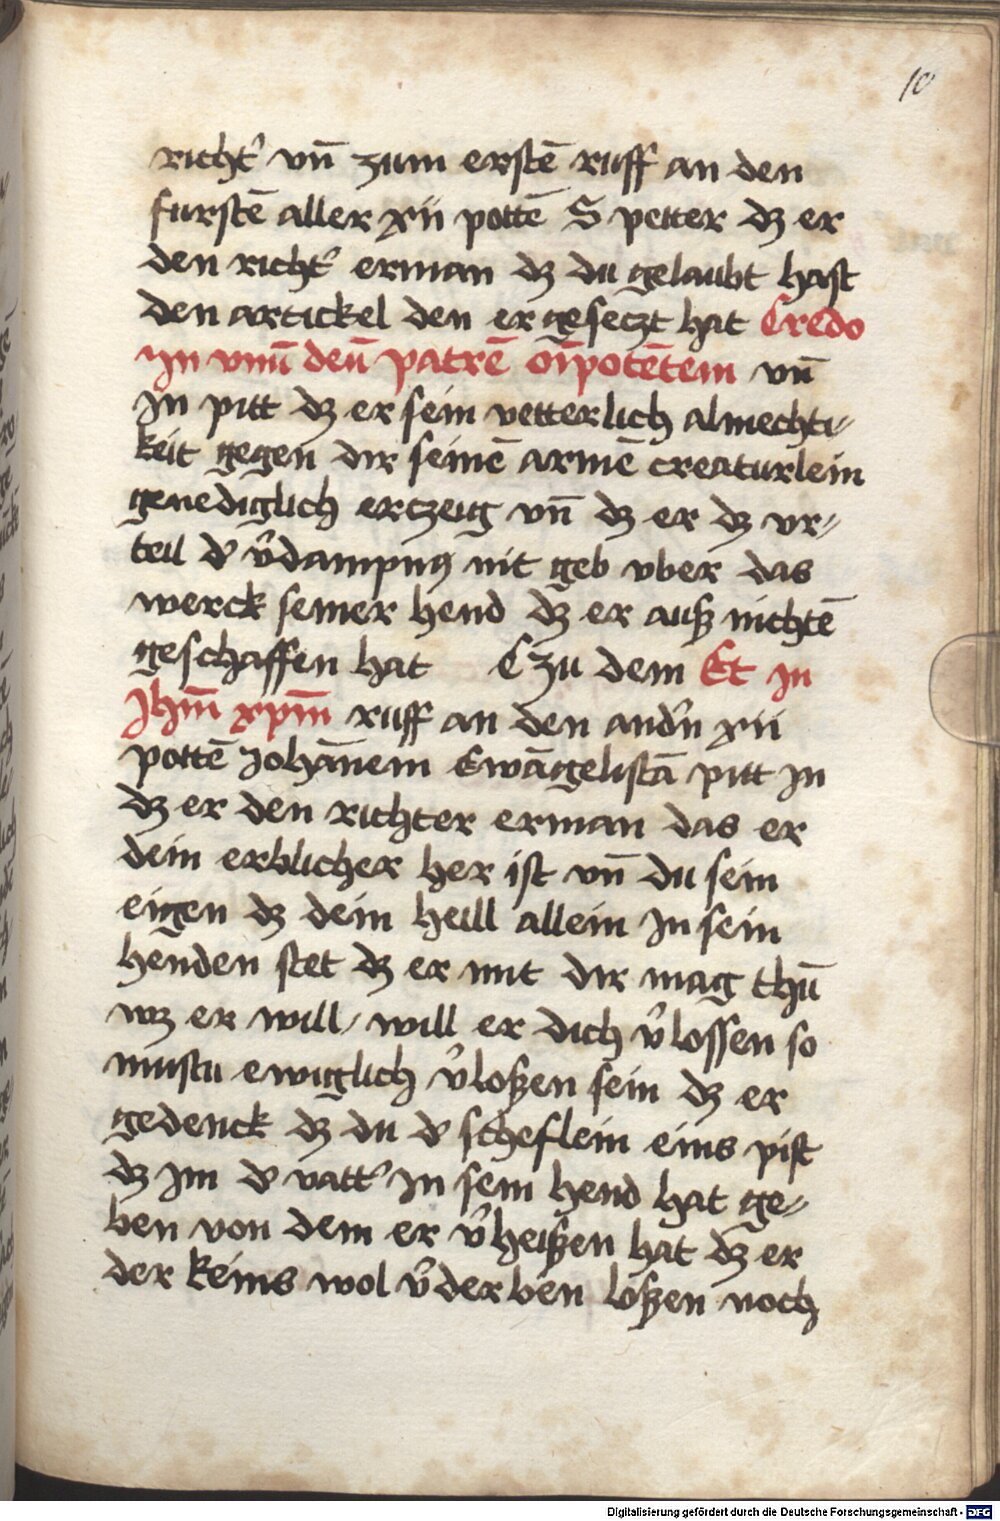 10
richt' vn̄ zum erstē ruff an den
furstē aller xii pottē S petter dz er
den richt' erman dz du gelaubt hast
den artickel den er gesetzt hat Credo
in vnū deū patrē oīpotētem vn̄
in pitt dz er sein vetterlich almechti⸗
keit gegen dir seinē armē creaturlein
genediglich ertzeig vn̄ dz er dz vr⸗
teil d' v̓dampnꝯ nit geb vber das
werck seiner hend dz er auß nichtē
geschaffen hat C zu dem Et in
Jhm̄ xpm̄ ruff an den and'n xii
pottē Johānem Ewāgelistā pitt in
dz er den richter erman das er
dein erblicher her ist vn̄ du sein
eigen dz dein heill allein in sein
henden stet dz er mit dir mag thū
wz er will / will er dich v̓lossen so
mustu ewiglich v̓loßen sein dz er
gedenck dz du d' scheflein eins pist
dz im d' vatt' in sein hend hat ge⸗
ben von dem er v̓heißen hat dz er
der keins wol v̓derben loßen noch
Digitalisierung gefördert durch die Deutsche Forschungsgemeinschaft - DFG